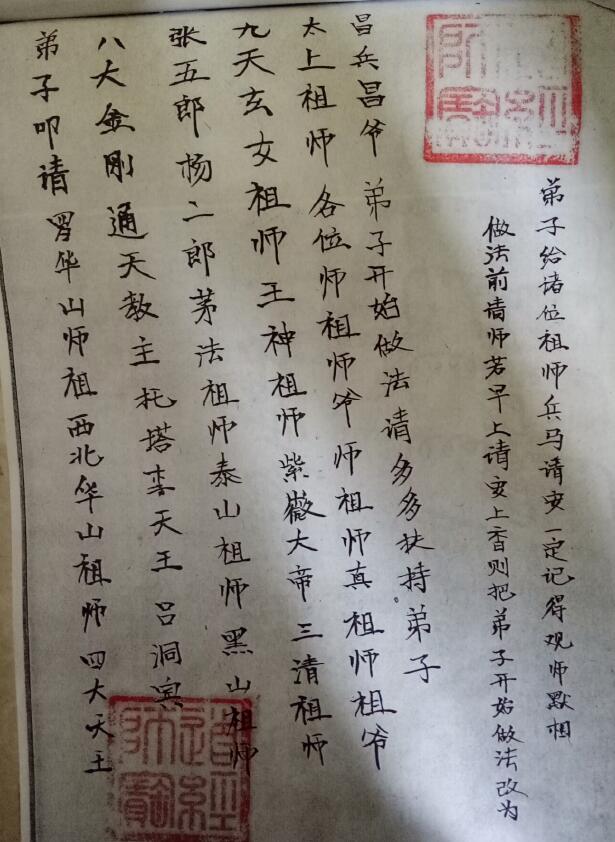 弟子叩请罗华山师祖西北华山祖师四大天王
八大金刚通天教主托塔李天王吕洞宾
张五郎杨二郎茅法祖师泰山祖师黑山祖师
九天玄女祖师王神祖师紫薇大帝三清祖师
太上祖师各位师祖师爷师祖师真祖师祖爷
昌兵昌爷 弟子开始做法请多多扶持弟子
做法前请师若早上请安上香则把弟子开始做法改为
弟子给诸位祖师兵马请安一定记得观师默相
道經師寶
道經師寶